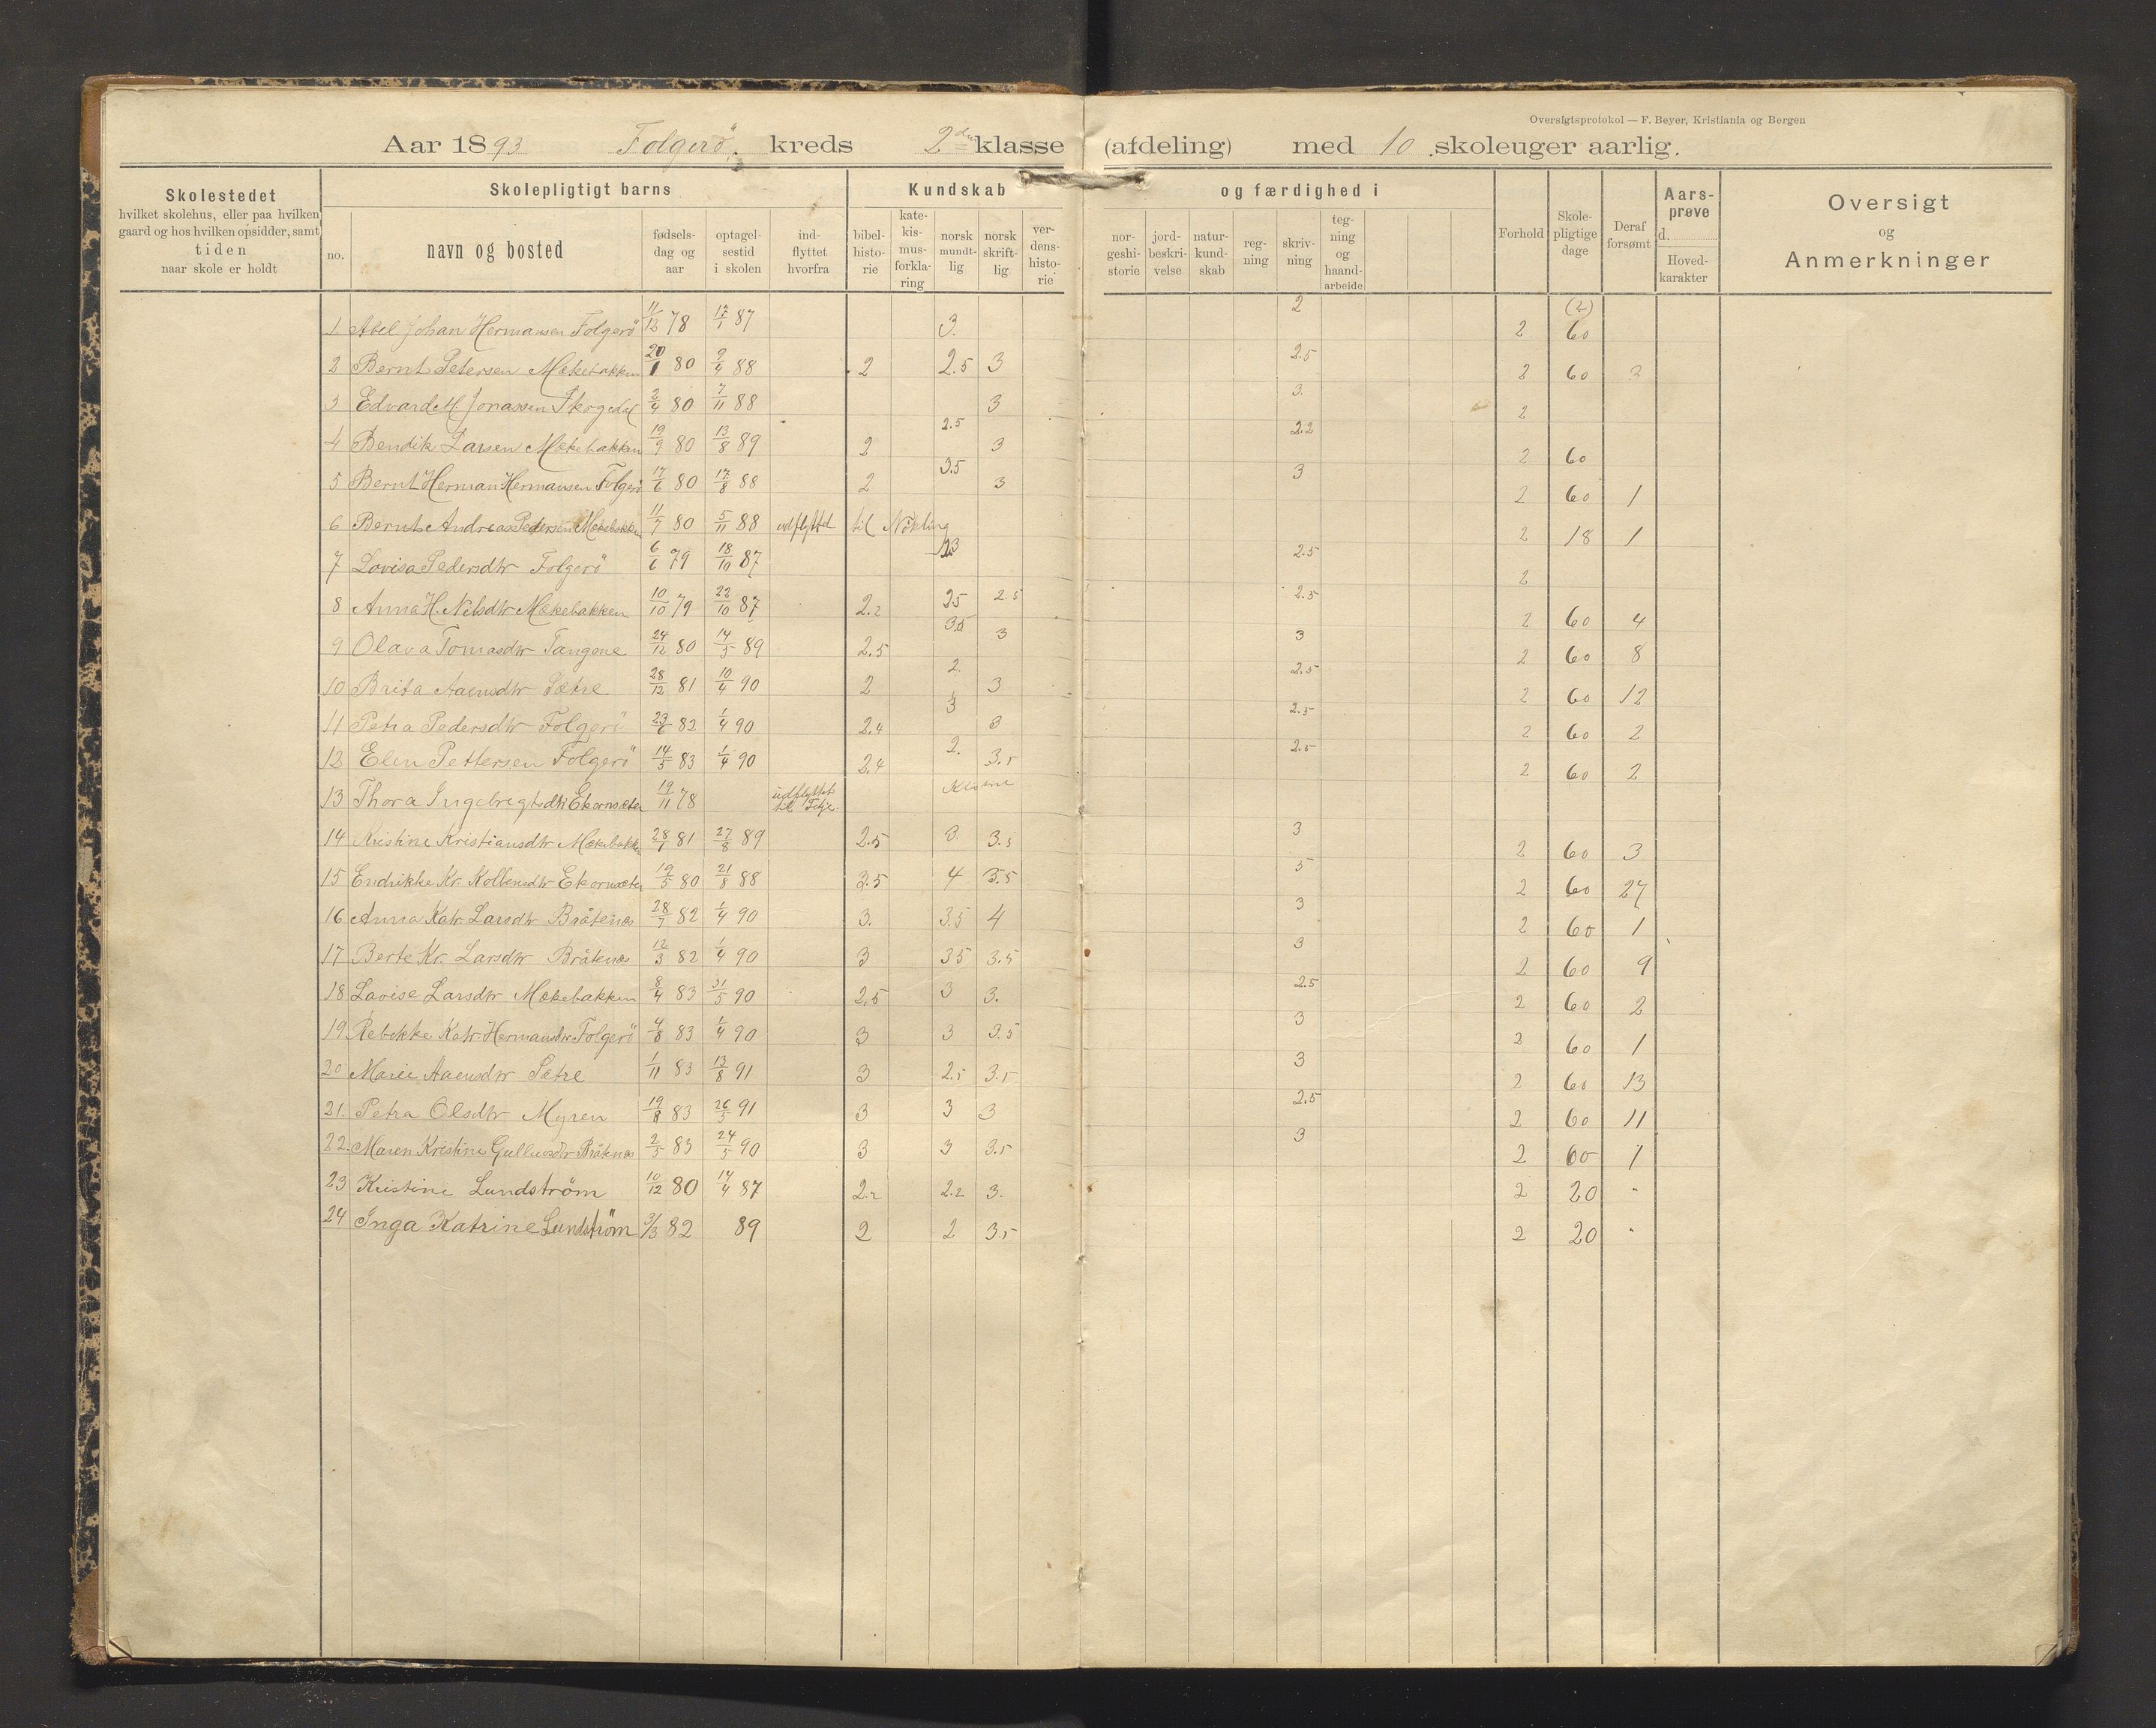 Oversigtsprotokol — F. Beyer, Kristiania og Bergen
Aar 1893 Folgerö kreds 2den klasse (afdeling) med 10 skoleuger aarlig.
Skolestedet
hvilket skolehus, eller paa hvilken
gaard og hos hvilken opsidder, samt
tiden
naar skole er holdt
Skolepligtigt barns
no.
navn og bosted
fødsels-
dag og
aar
optagel-
sestid
i skolen
ind-
flyttet
hvorfra
Kundskab og færdighed i
bibel-
histo-
rie
kate-
kis-
mus-
forkla-
ring
norsk
mundt-
lig
norsk
skrift-
lig
ver-
dens-
histo-
rie
nor-
geshi-
storie
jord-
beskri-
velse
natur-
kund-
skab
reg-
ning
skriv-
ning
teg-
ning
og
haand-
arbeide
Forhold
Skole-
pligtige
dage
Deraf
forsømt
Aars-
prøve
d.
Hoved-
karakter
Oversigt
og
Anmerkninger
1. Abel Johan Hermansen Folgerö 11/12 78 17/1 87 3. 2 2 (2) 60
2 Bernt Petersen Mækebakken 20/1 80 2/4 88 2 2.5 3 2.5 2 60 3
3 Edvard M. Jonassen Skogedal 2/4 80 7/11 88 3 3. 2
4 Bendik Larsen Mækebakken 19/9 80 13/8 89 2 2.5 3 2.2 2 60
5 Bernt Herman Hermansen Folgerö 17/6 80 17/8 88 2 3.5 3 3 2 60 1
6 Bernt Andreas Pedersen Mækebakken 11/7 80 5/11 88 udflyttet til Nökling 2 18 1
7 Lovisa Pedersdtr Folgerö 6/6 79 18/10 87 2.5 2
8 Anna H. Nilsdtr Mækebakken 10/10 79 22/10 87 2.2 25 2.5 2.5 2 60 4
9 Olava Tomasdtr Tangene 24/12 80 14/5 89 2.5 3.5 3 3 2 60 8
10 Brita Aaensdtr Sætre 28/12 81 10/4 90 2 2. 3 2.5 2 60 12
11 Petra Pedersdtr Folgerö 23/6 82 1/4 90 2.4 3 3 2.5 2 60 2
12 Elen Pettersen Folgerö 14/5 83 1/4 90 2.4 2. 3.5 2.5 2 60 2
13 Thora Ingebregtsdtr Ekornsæter 19/11 78 udflyttet til
14 Kristine Kristiansdtr Mækebakken 28/1 81 27/8 89 2.5 3. 3.5 3 2 60 3
15 Endrikke Kr. Kolbensdtr Ekornsæter 19/5 80 21/8 88 3.5 4 3.5 5 2 60 27
16 Anna Katr. Larsdtr Bråtenæs 28/7 82 1/4 90 3. 3.5 4 3 2 60 1
17 Berte Kr. Larsdtr Bråtnæs 12/3 82 1/4 90 3 35 3.5 3 2 60 9
18 Lavise Larsdtr Mækebakken 8/4 83 31/5 90 2.5 3 3. 2.5 2 60 2
19 Rebekke Katr. Hermansdtr Folgerö 4/8 83 1/4 90 3 3 3.5 3 2 60 1
20 Marie Aaensdtr Sætre 1/11 83 13/8 91 3 2.5 3.5 3 2 60 13
21. Petra Olsdtr Myren 19/8 83 26/5 91 3 3 3 2.5 2 60 11
22. Maren Kristine Gulleivsdtr Bråtnæs 2/5 83 24/5 90 3 3 3.5 3 2 60 1
23 Kristine Lundström 10/12 80 14/4 87 2.2 2.2 3. 2 20 "
24 Inga Katrine Lundström 3/3 82 89 2 2 3.5 2 20 "